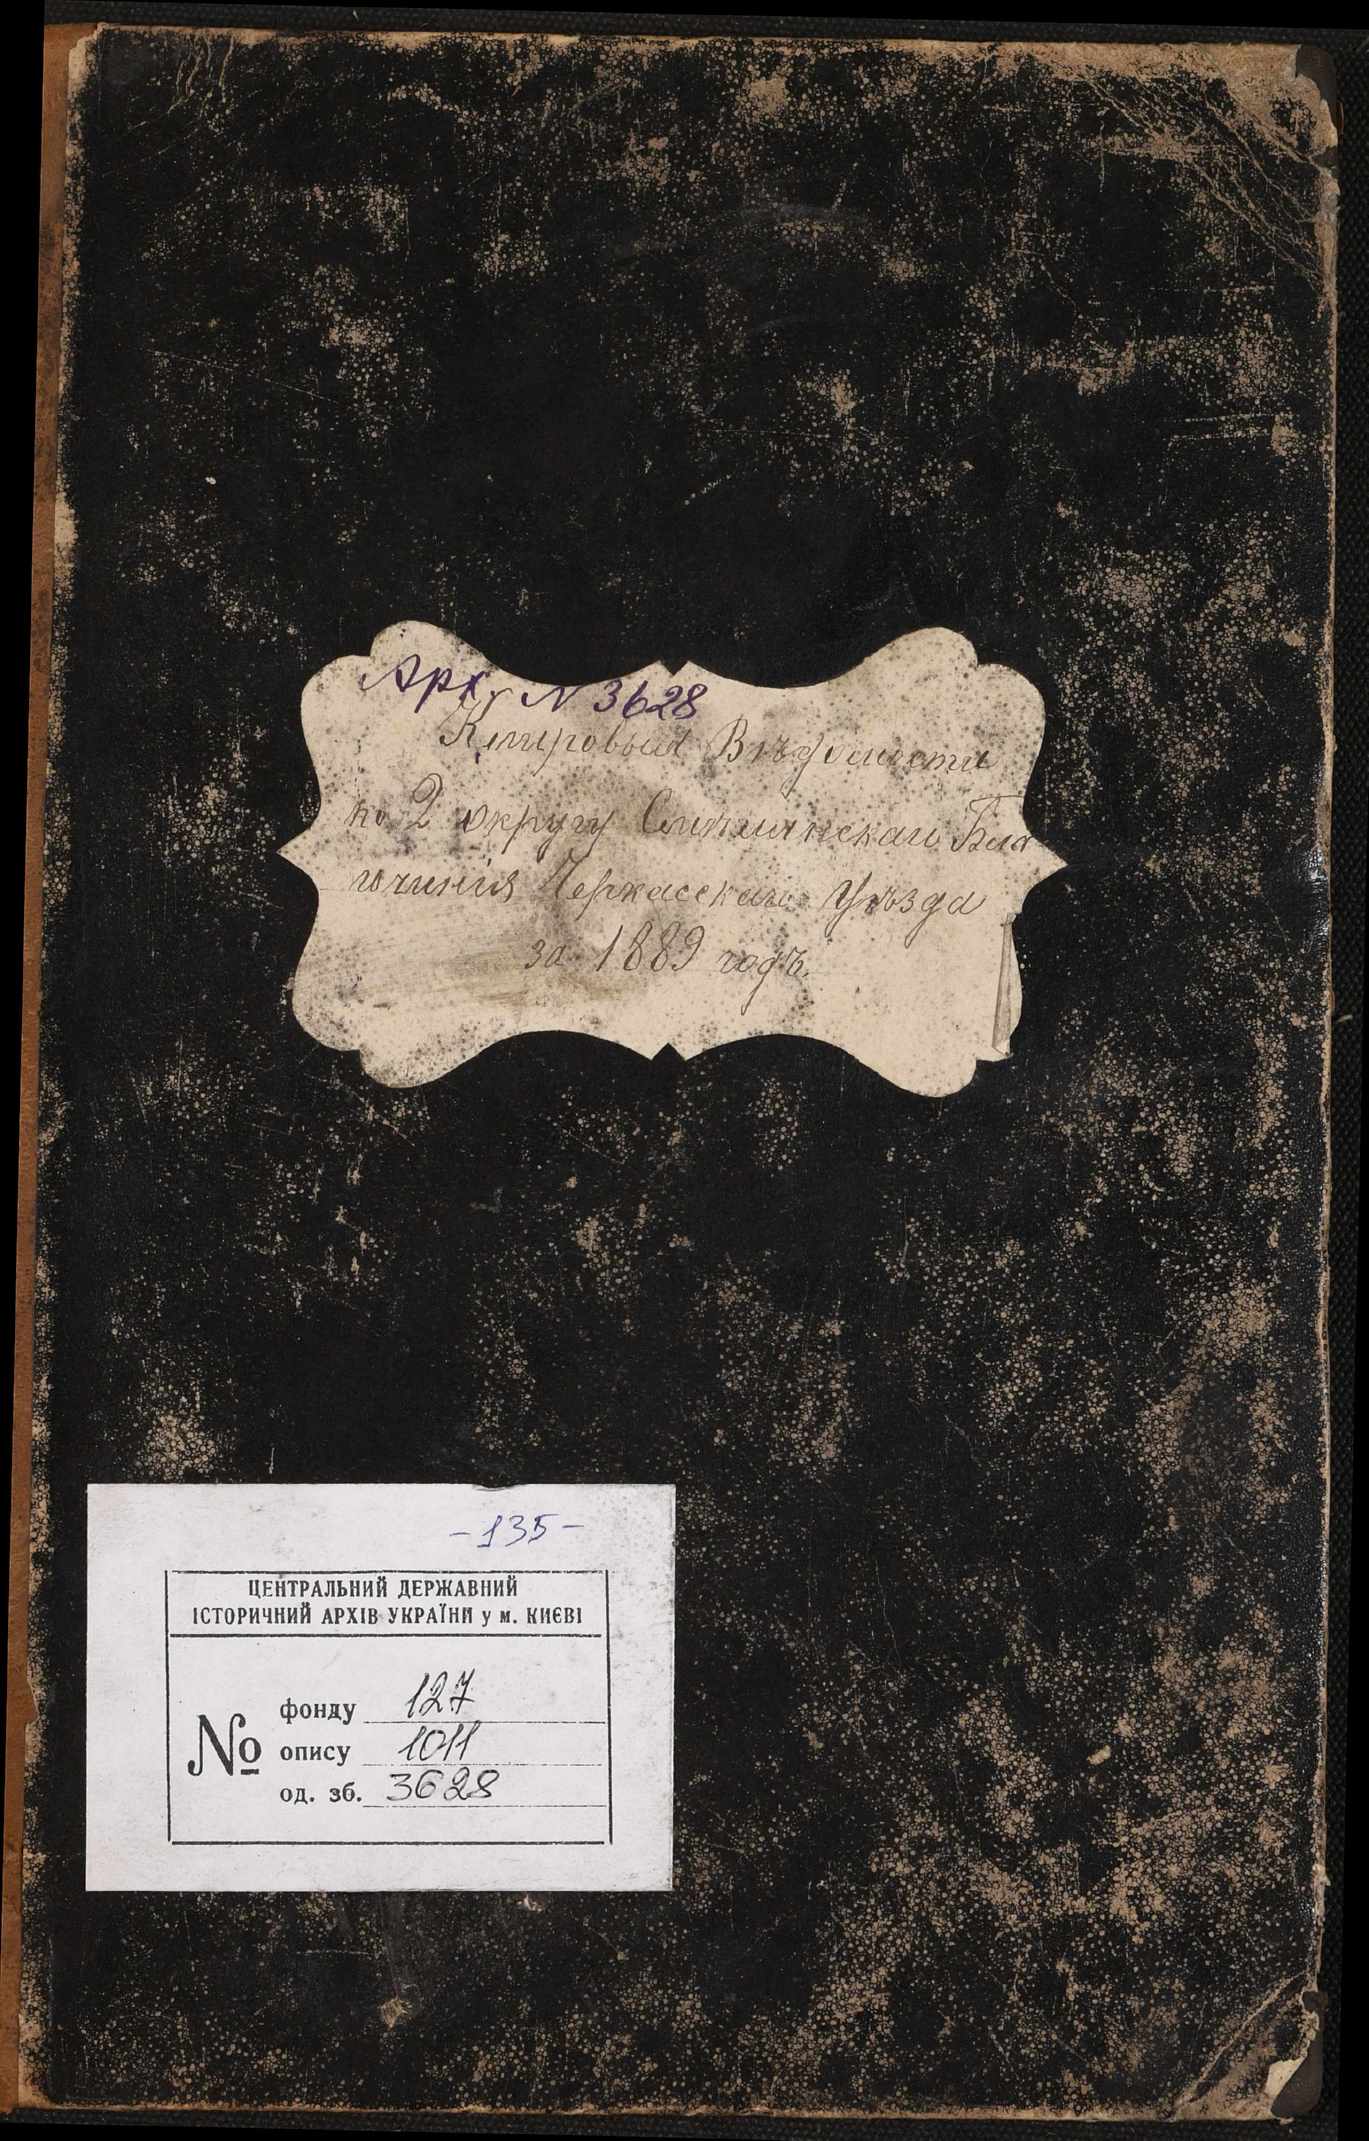 Арх. N 3628
Клировыя Вѣдомости
по 2 округу Смѣлянскаго Бла
гочинія Черкасскаго Уѣзда
за 1889 годъ.
-135-
ЦЕНТРАЛЬНИЙ ДЕРЖАВНИЙ
ІСТОРИЧНИЙ АРХІВ УКРАЇНИ у м. КИЄВІ
№
фонду 127
опису 1011
од. зб. 3628